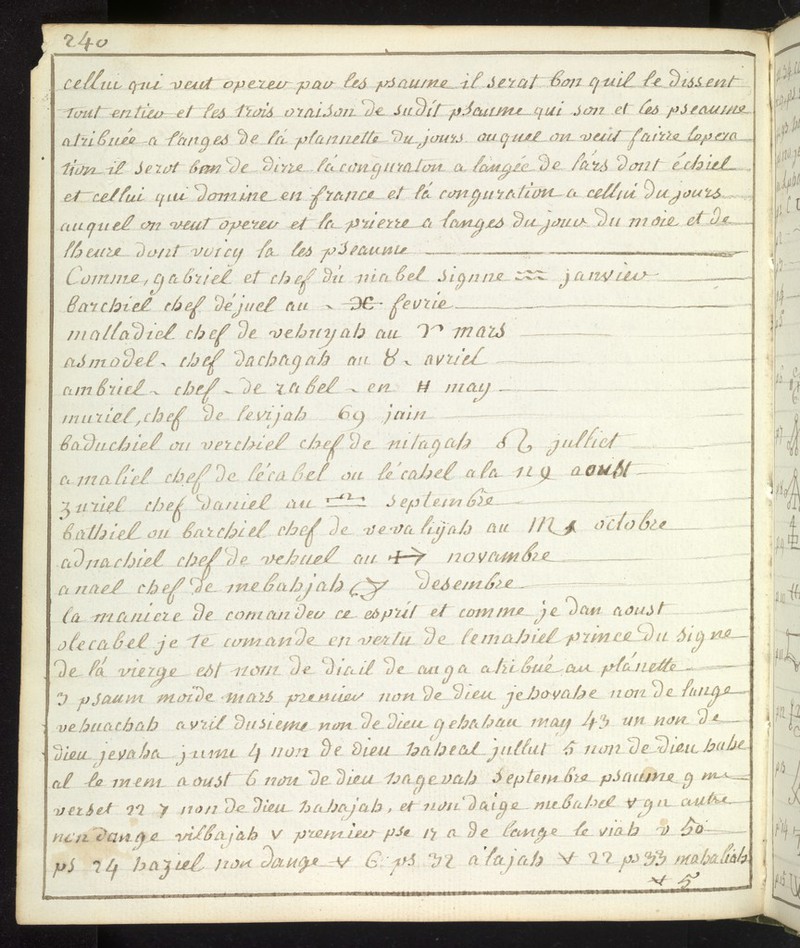 240
cellui qui veut operer par les psaume il serat bon quil le dissent
tout entier et les trois oraison de sudit psaume qui son et les pseaume
atribuée a langes de la plannette du jours ouquel on veut fairre lopera
tion il serot bon de dirre la conguraton a langée de lárs dont échiel
et cellui qui domine en france et lá conguration a cellui du jours
auquel on veut operer et la prierre a langes du jour du moie et de
lheure dont voicy la les pseaume
Comme, gabriel et chef du niabel signne ♒ janvier
Barchiel chef déjuel au ♓ fevrie
malladiel chef de vehuyah au ♈ mars
asmodel chef dachagáh au ♉ avriel
ambriel chef de zabel en ♊ may
muriel, chef de levijah 69 juin
baduchiel ou verchiel chef de nitagah ♌ julliet
amaliel chef de lécabel ou lécahel a la ♍ aoust
zuriel chef daniel au ♎ septembre
bathiel ou barchiel chef de vevalijah au ♏ octobre
adnachiel chef de vehuel au ♐ novambre
anael chef de mebahjah ♑ desembre
la maniere de comander ce esprit et comme je dan aoust
olecabel je te comande en vertu de lemahiel prince du signe
de lá vierge est nom de diail de auga atribué au plánette
3 psaum moide mars premier non de dieu jehovahe non de lange
vehuachah avril dusieme non de dieu gehahau may 43 un non de
dieu jevaha jumu 4 non de dieu haheal jullut 5 non de dieu hahe
al le mem aoust 6 non de dieu hagevah septembre psaume 9 me
verset 22 7 non de dieu hahajah, et non daige mebahel v gn autre
non dange vilbajah v premier pse 17 a de lange le viah v 50
ps 24 haziel non dange v 6 ps 32 alajah v 22 ps 33 mahaliáh
v 5